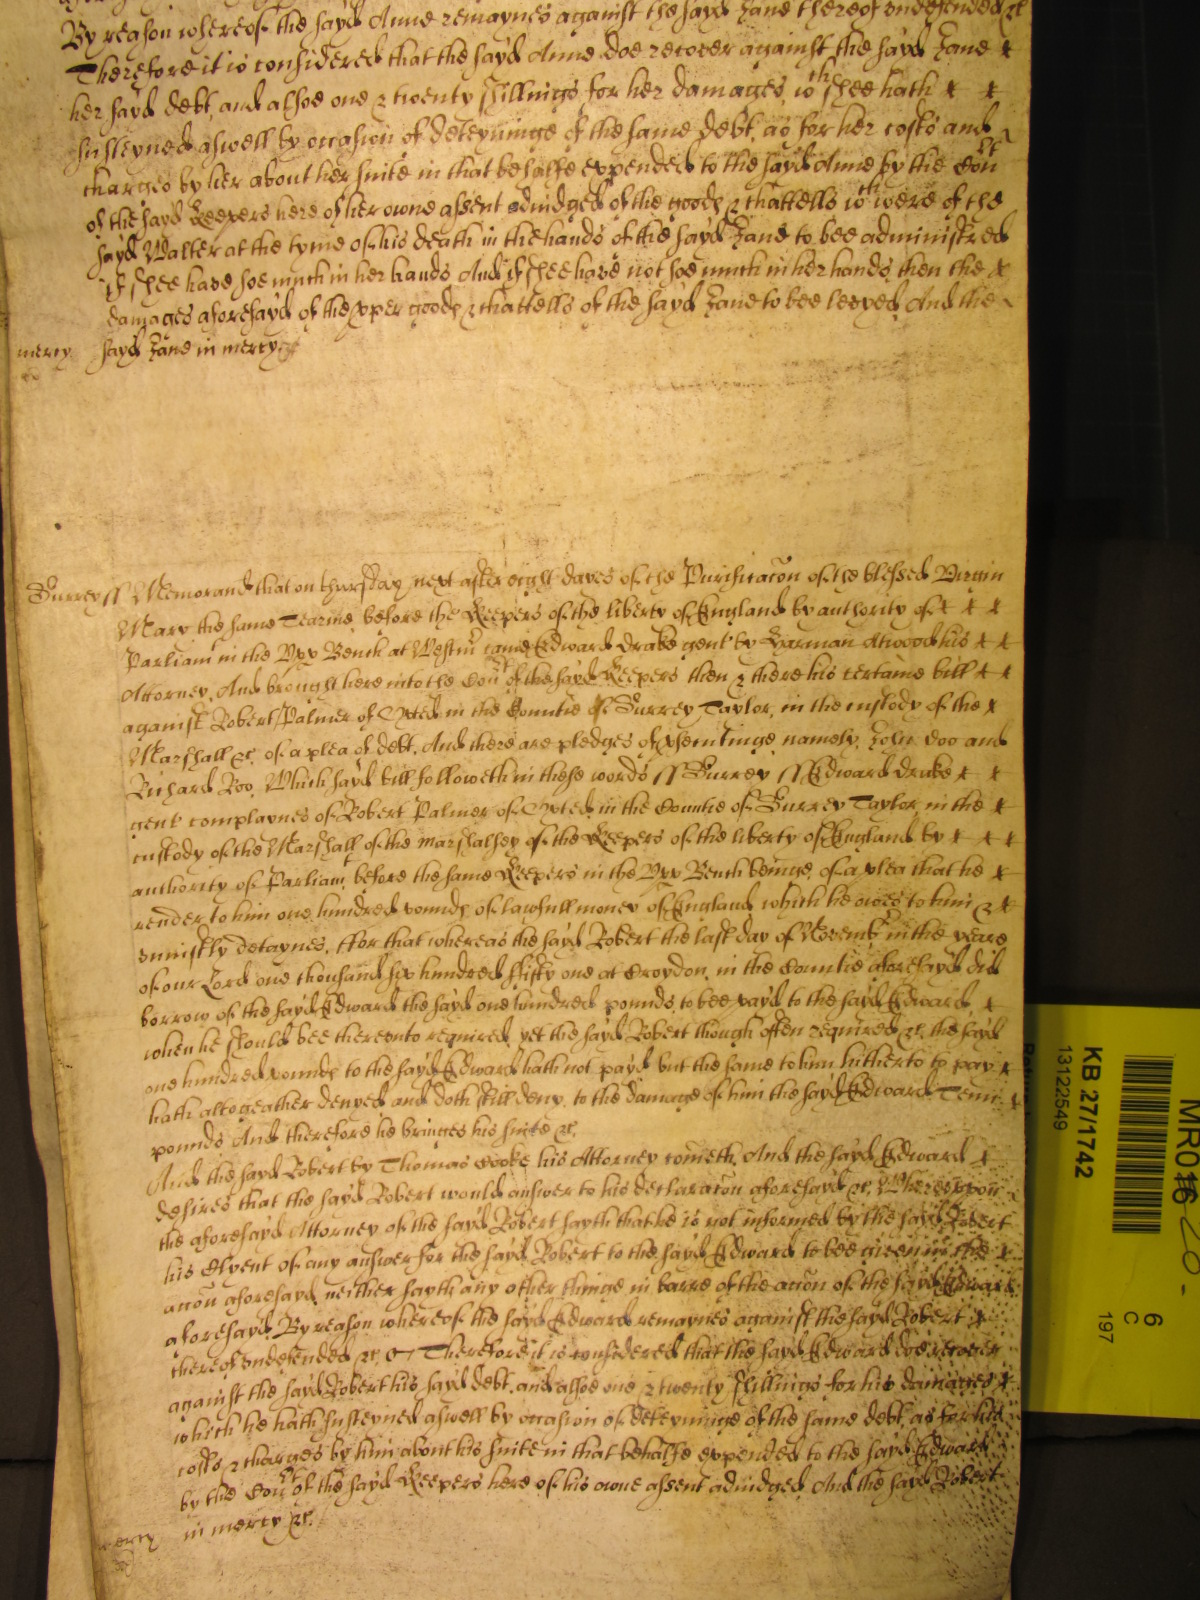 By reason whereof the sayd Anne remaynes against the sayd Jane thereof undefended &c
Therefore it is considered that the sayd Anne doe recover against the sayd Jane
her sayd debt, and alsoe one & twenty shillings for her damages, wch shee hath
susteyned aswell by occasion of deteyninge of the same debt, as for her costs and
charges by her about her suite in that behalfe expended to the sayd Anne by the Court
of the sayd Keepers here of her owne assent adiudged of the goods & chattells wch were of the
sayd Walter at the tyme of his death in the hands of the sayd Jane to bee administred
If shee have soe much in her hands And if shee have not soe much in her hands then the
damages aforesayd of the proper goods & chattells of the sayd Jane to bee levyed And the
mercy sayd Jane in mercy
Surrey ss Memorand that on thursday next after eight dayes of the Purificacon of the blessed Virgin
Mary the same Tearme before the Keepers of the liberty of England by authority of
Parliam in the Upp Bench at Westm came Edward Drake gent by Harman Atwood his
Attorney. And brought here into the Court of the sayd Keepers then & there his certaine bill
against Robert Palmer of Oxted in the Countie of Surrey Taylor, in the custody of the
Marshall &c. of a plea of debt. And there are pledges of prosecutinge namely, John Doo and
Richard Roo. Which sayd bill followeth in these words ss Surrey ss Edward Drake
gent complaynes of Robert Palmer of Oxted in the Countie of Surrey Taylor, in the
custody of the Marshall of the marshalsey of the Keepers of the liberty of England by
authority of Parliam, before the same Keepers in the Upp Bench beinge, of a plea that he
render to him one hundred pounds of lawfull money of England which he owes to him &
uniustly detaynes, ffor that whereas the sayd Robert the last day of Novemb in the yeare
of our Lord one thousand six hundred fifty one at Croydon, in the Countie aforesayd did
borrow of the sayd Edward the sayd one hundred pounds, to bee payd to the sayd Edward,
when he should bee thereunto required, yet the sayd Robert though often required &c. the sayd
one hundred pounds to the sayd Edward hath not payd but the same to him hitherto to pay
hath altogeather denyed and doth still deny, to the damage of him the sayd Edward Tenn
pounds And therefore he bringes his suite &c.
And the sayd Robert by Thomas Cooke his Attorney cometh. And the sayd Edward
desires that the sayd Robert would answer to his declaracon aforesayd &c. Whereuppon
the aforesayd Attorney of the sayd Robert sayth that he is not informed by the sayd Robert
his Clyent of any answer for the sayd Robert to the sayd Edward to bee given in the
accon aforesayd, neither sayth any other thinge in barre of the accon of the sayd Edward
aforesayd By reason whereof the sayd Edward remaynes against the sayd Robert
thereof undefended &c. Therefore it is considered that the sayd Edward doe recover
against the sayd Robert his sayd debt, and alsoe one & twenty shillings for his damages
which he hath susteyned aswell by occasion of deteyninge of the same debt, as for his
costs & charges by him about his suite in that behalfe expended to the sayd Edward
by the Court of the sayd Keepers here of his owne assent adiudged And the sayd Robert
mercy in mercy &c.
KB 27/1742
13122549
6
C
197